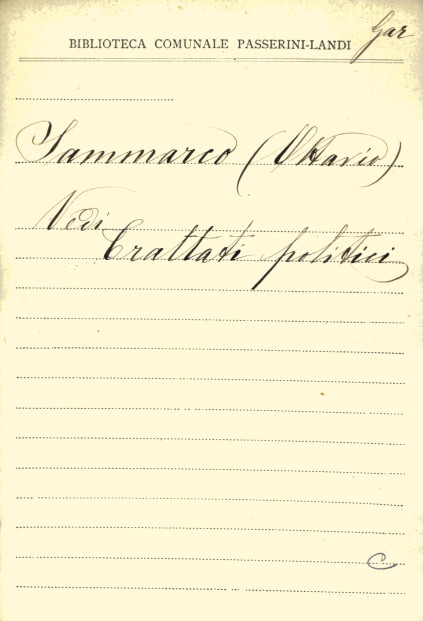 Gar
BIBLIOTECA COMUNALE PASSERINI-LANDI
Sammarco (Ottavio)
Vedi
Trattati politici
C